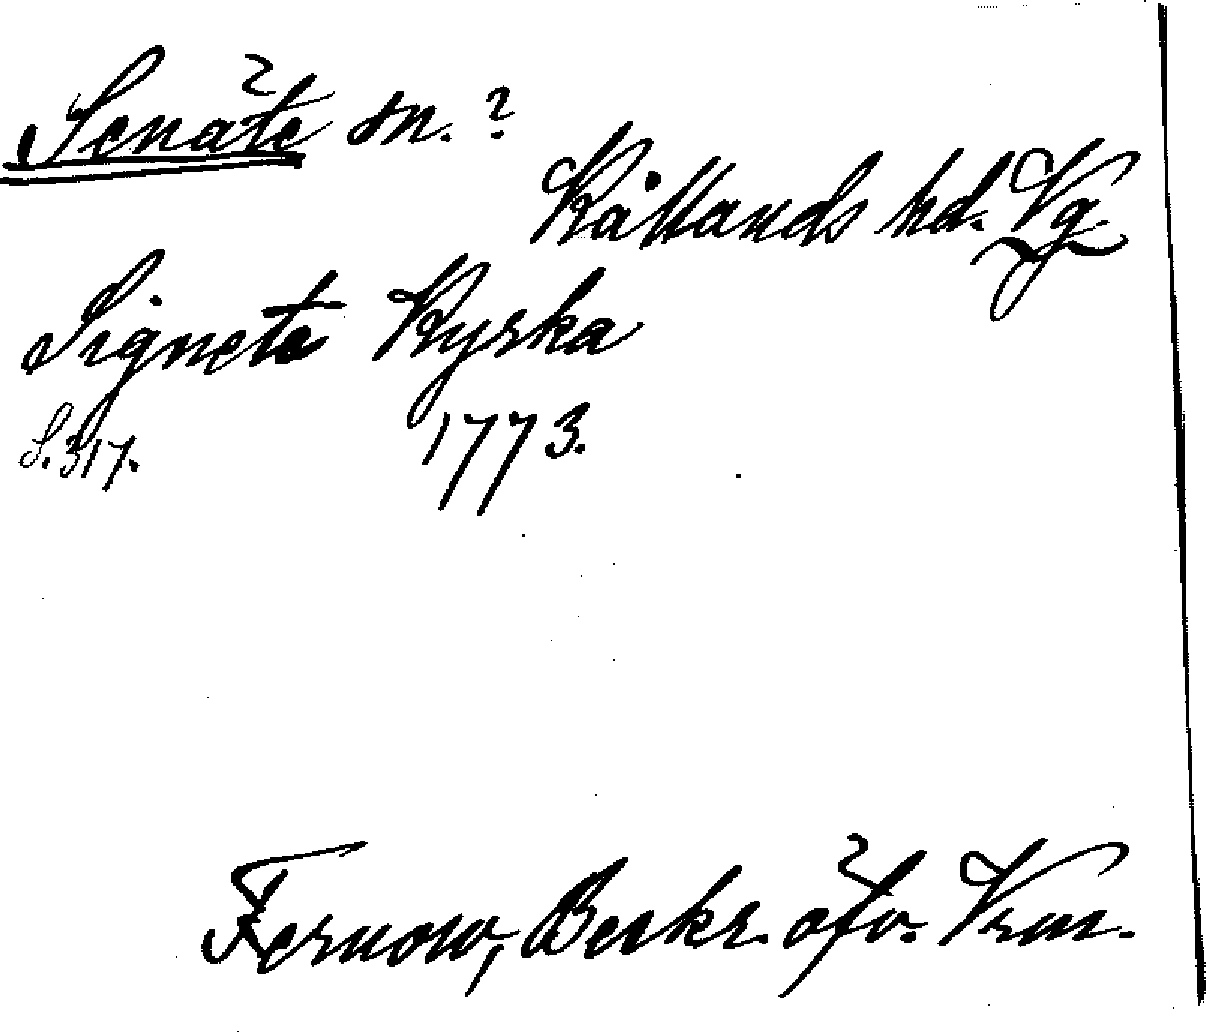 Senäte sn.?
Kållands hd. Vg.
Signete Kyrka
S. 317. 1773.
Fernow, Beskr. öfv. Vrm.